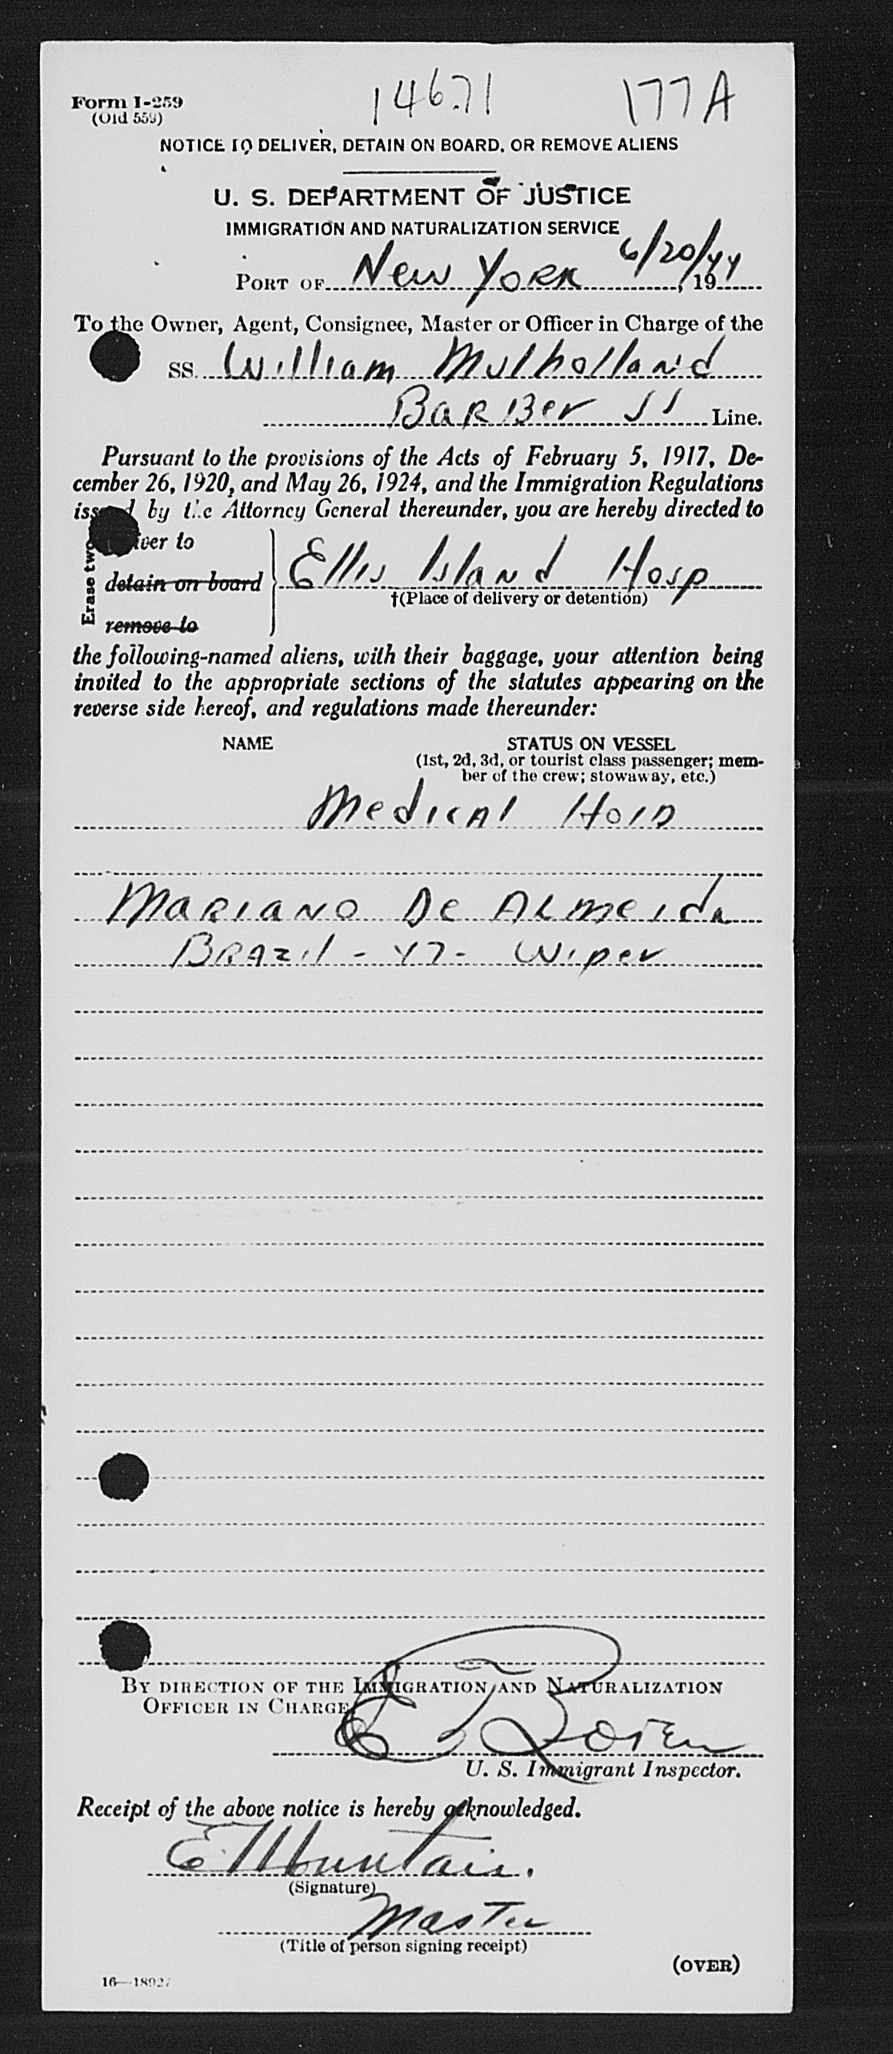 Form I-259 14671 177A
(Old 559)
NOTICE TO DELIVER, DETAIN ON BOARD, OR REMOVE ALIENS
U. S. DEPARTMENT OF JUSTICE
IMMIGRATION AND NATURALIZATION SERVICE
PORT OF New York 6/20/44, 19
To the Owner, Agent, Consignee, Master or Officer in Charge of the
SS. William Mulholland
Barber SS Line.
Pursuant to the provisions of the Acts of February 5, 1917, De-
cember 26, 1920, and May 26, 1924, and the Immigration Regulations
issued by the Attorney General thereunder, you are hereby directed to
deliver to
Erase two detain on board Ellis Island Hosp
†(Place of delivery or detention)
remove to
the following-named aliens, with their baggage, your attention being
invited to the appropriate sections of the statutes appearing on the
reverse side hereof, and regulations made thereunder:
NAME STATUS ON VESSEL
(1st, 2d, 3d, or tourist class passenger; mem-
ber of the crew; stowaway, etc.)
Medical Hold
Mariano De Almeida
Brazil - 47 - Wiper
BY DIRECTION OF THE IMMIGRATION AND NATURALIZATION
OFFICER IN CHARGE
U. S. Immigrant Inspector.
Receipt of the above notice is hereby acknowledged.
E Mountain.
(Signature)
Master
(Title of person signing receipt)
(OVER)
16—18927